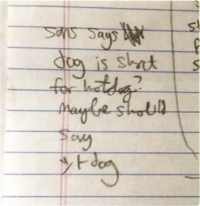 sons says
dog is short
for hotdog?
maybe should
say
dog